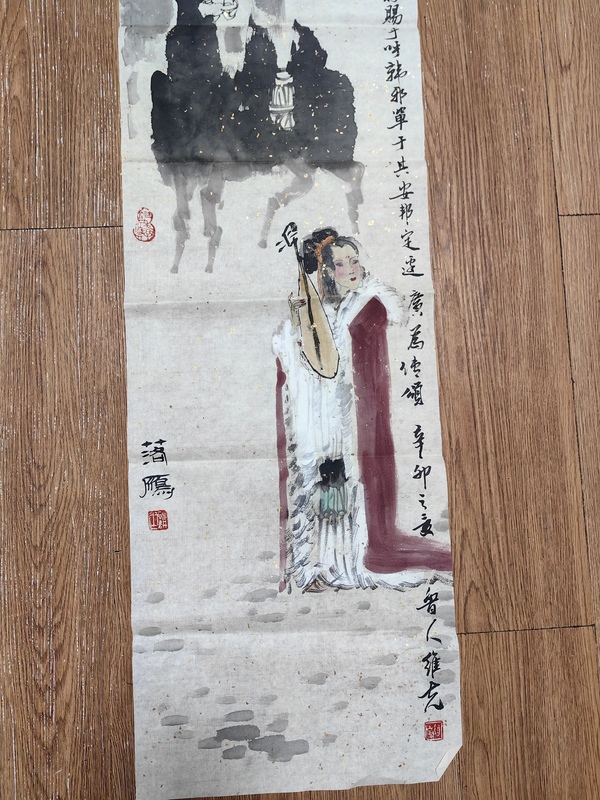 賜于呼韓邪單于其安邦定邊廣為傳頌 辛卯之夏
晉人維克
落鴈